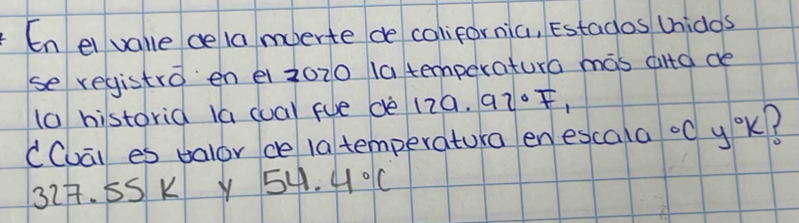 En el valle de la muerte de california, Estados Unidos
se registró en el 2020 la temperatura más alta de
la historia la cual fue de 129.92°F,
¿Cuál es valor de la temperatura en escala °C y °K?
327.55 K y 54.4°C